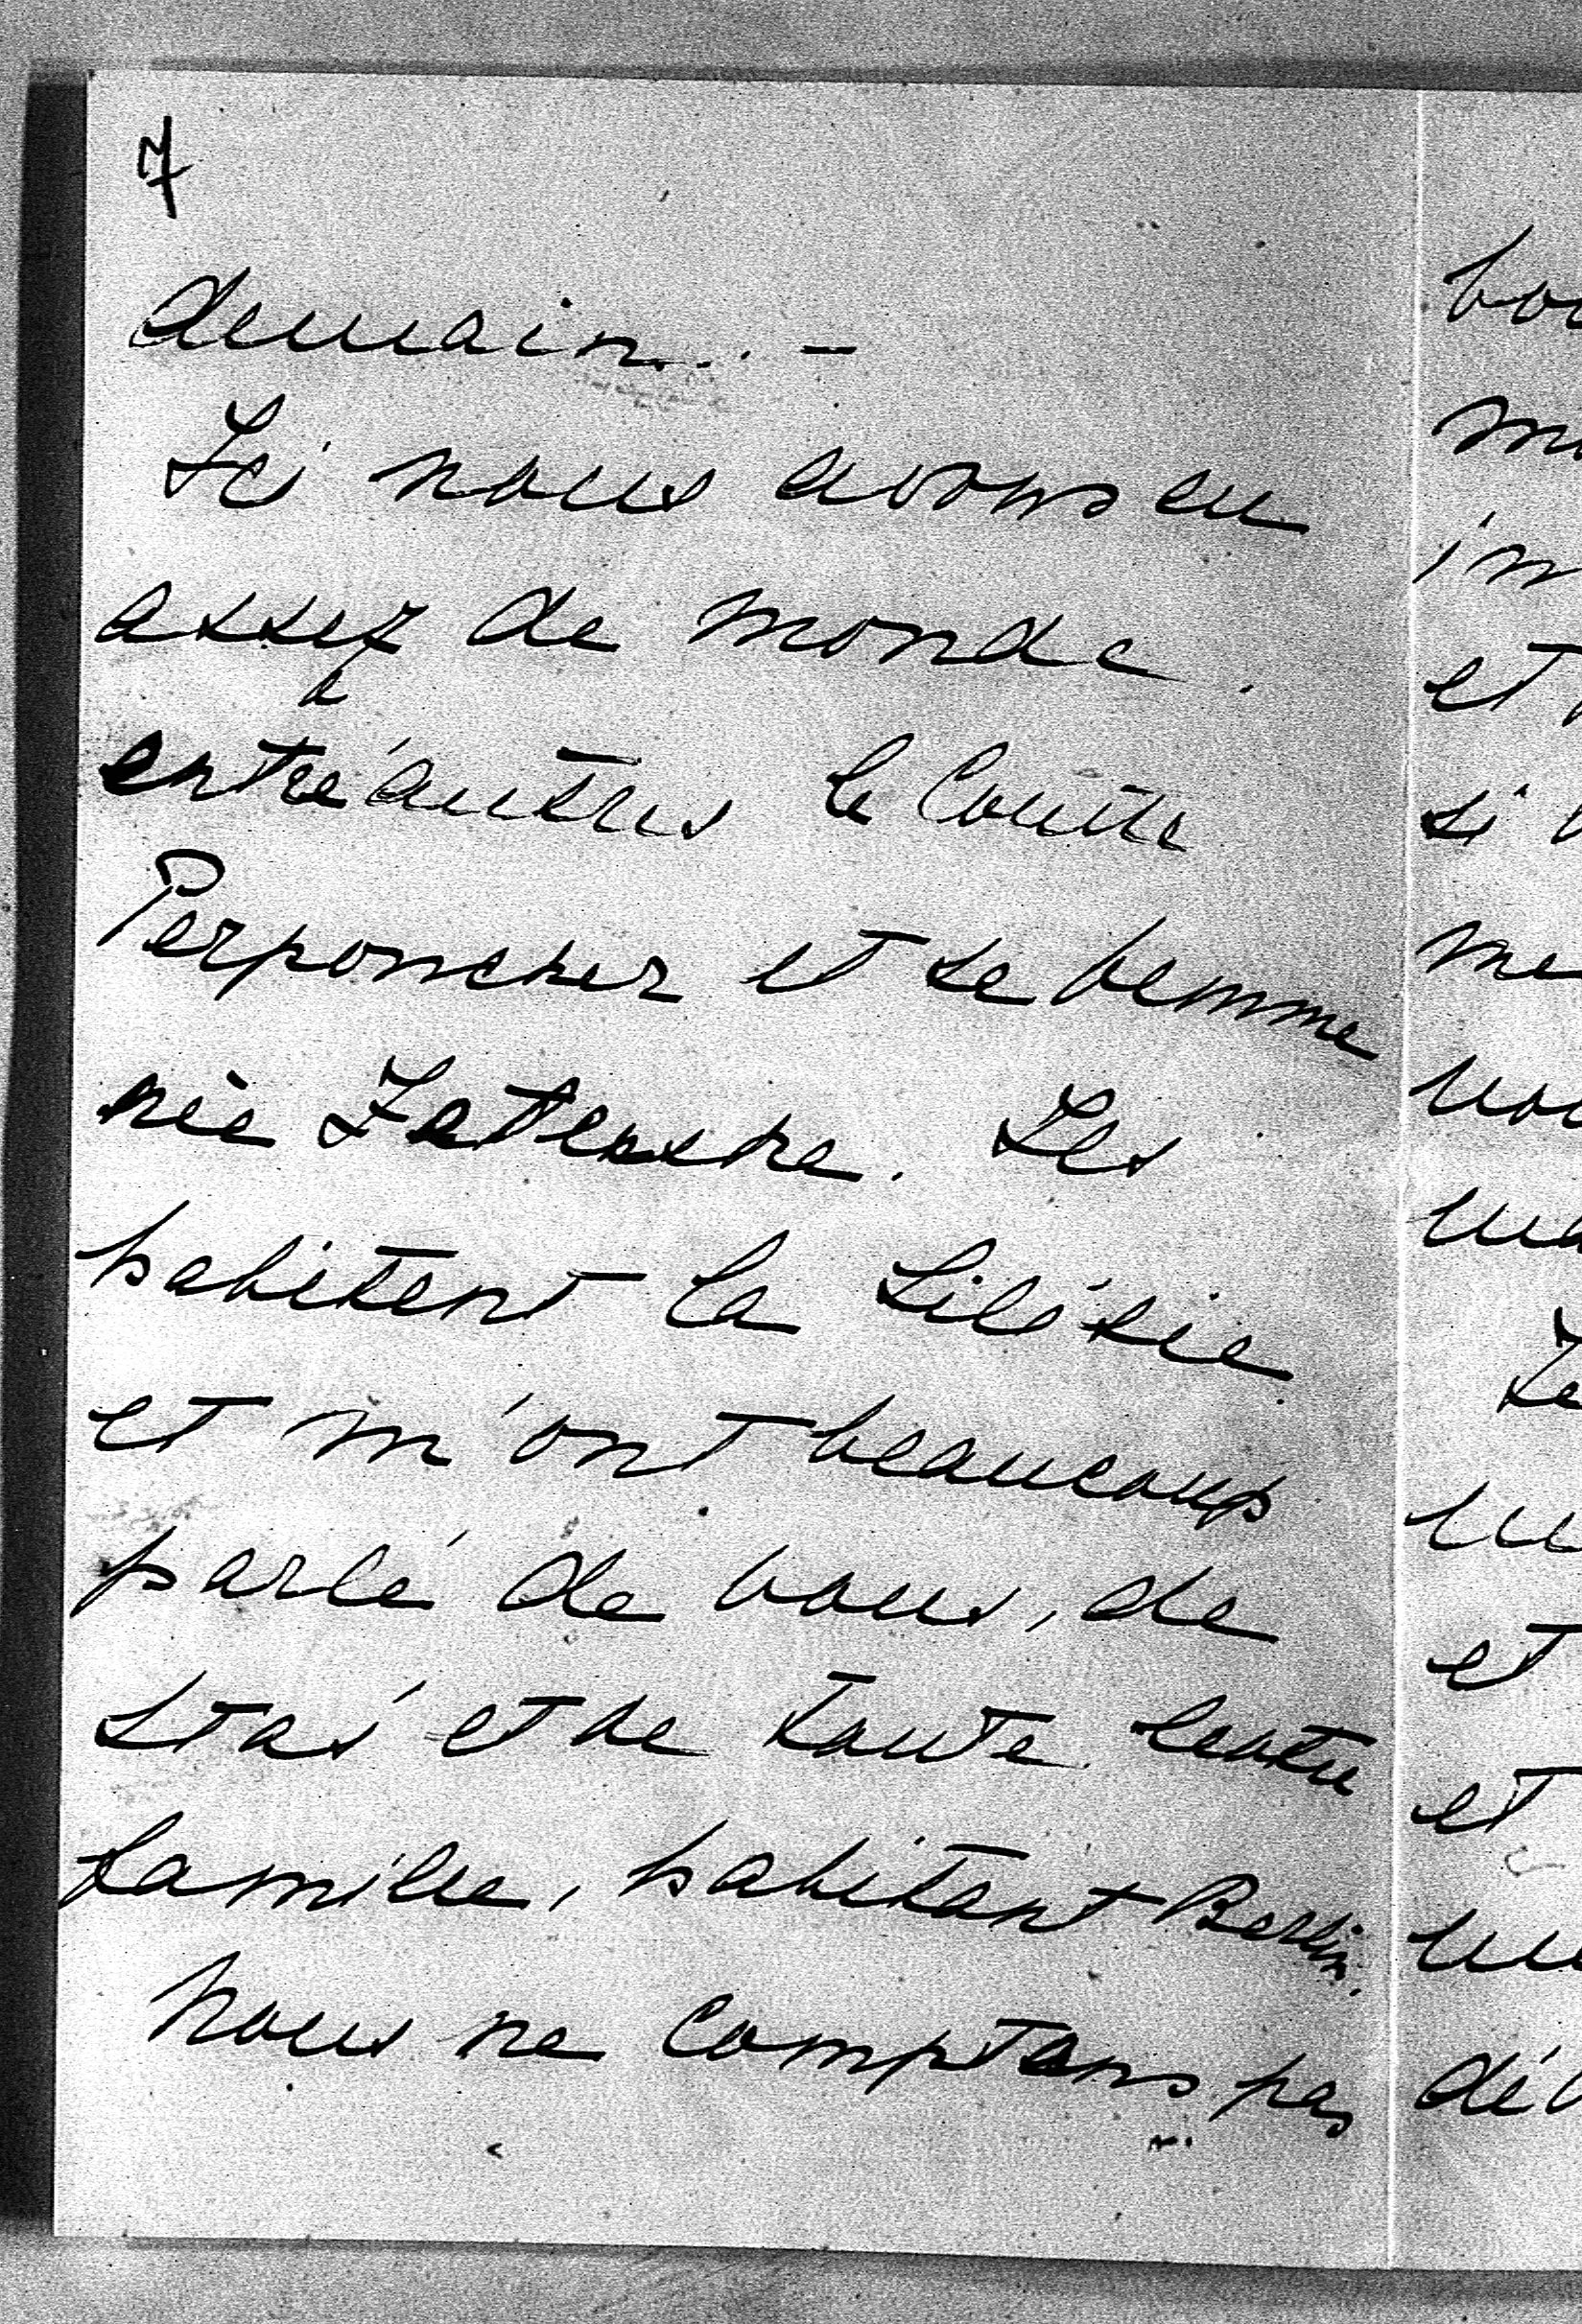 7
demain... -
Ici nous avons eu
assez de monde.
entre autres le Comte
Perponcher et sa femme
née. Ils
habitent la Silésie
et m'ont beaucoup
parlé de vous, de
Stas et de toute leur
famille, habitant Berlin.
Nous ne comptons pas